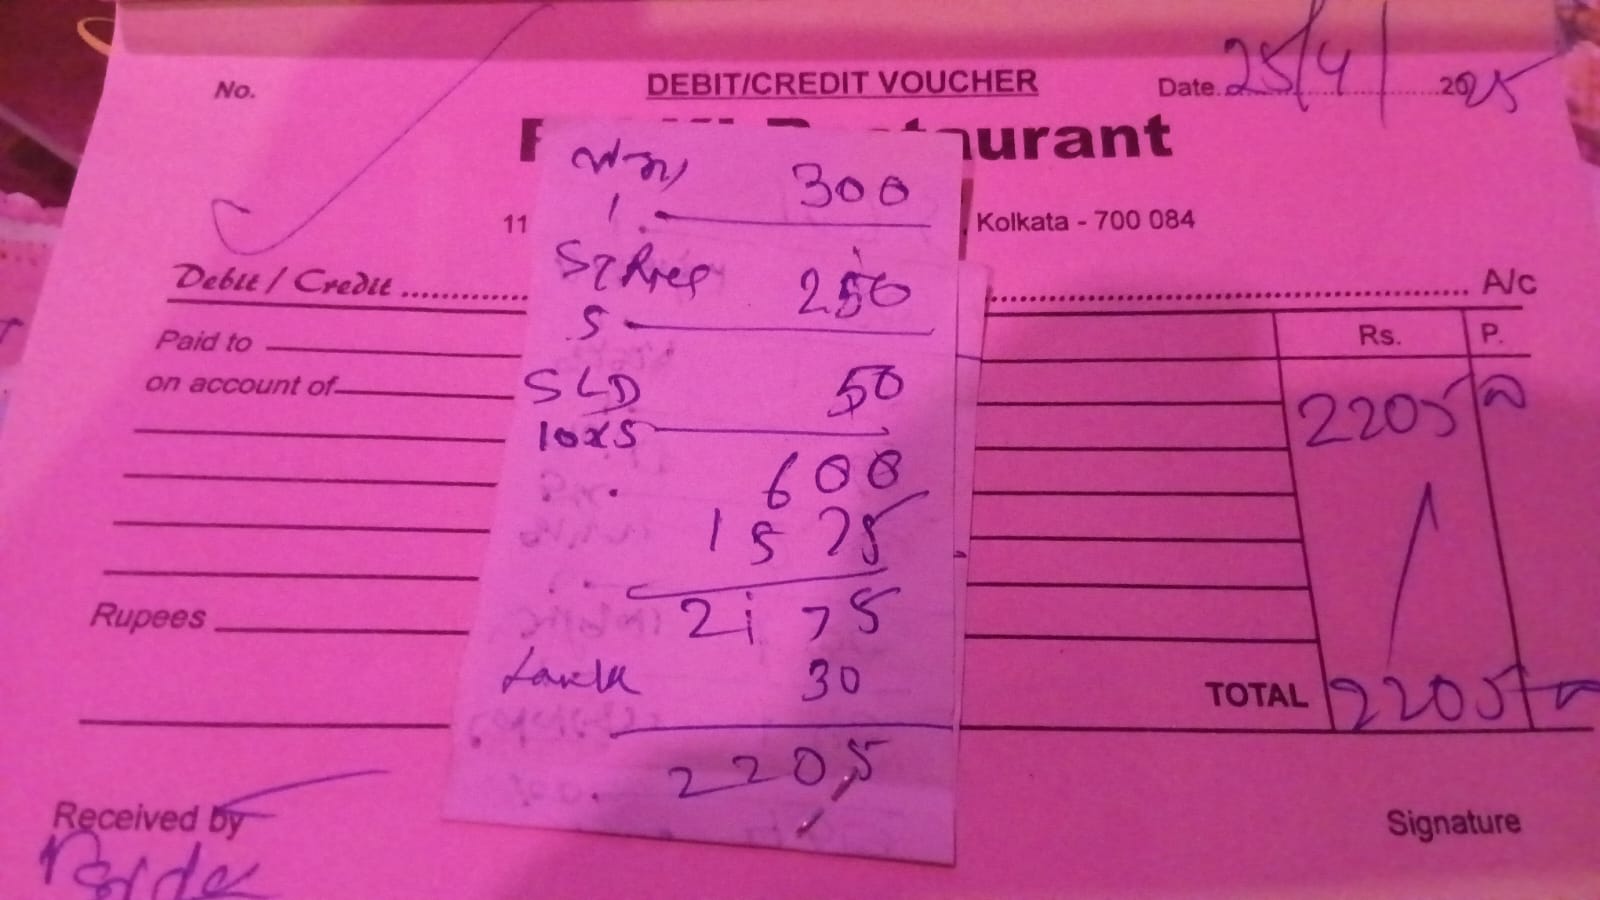 No.
DEBIT/CREDIT VOUCHER
Date 25/4/ 2025
Restaurant
11
Kolkata - 700 084
Debit / Credit ........ A/c
Paid to
on account of
Rs. P.
2205
Rupees
TOTAL 2205
Received by
Signature
300
1
250
5
SLD 50
10x5
600
1575
2175
Lanka 30
2205